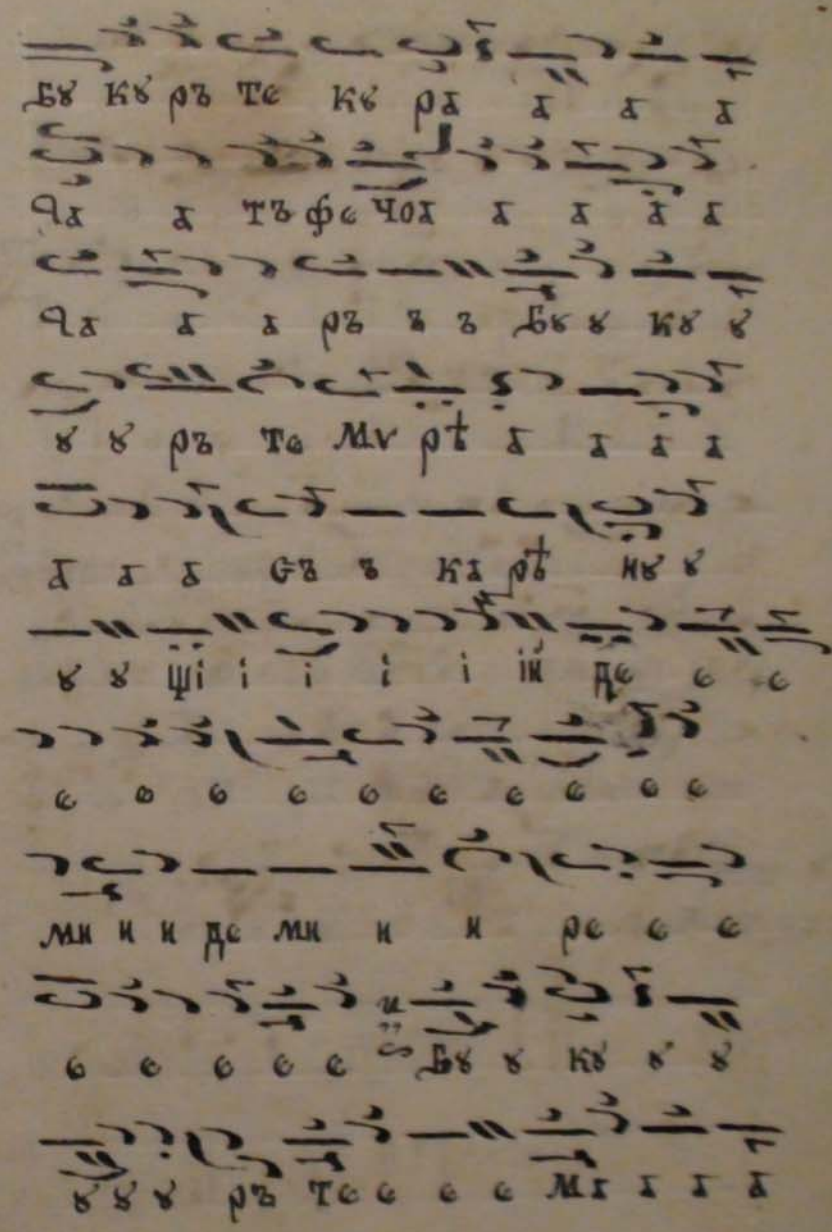 Бꙋ кꙋ ръ те кꙋ ра а а а
Ча а тъ фе чоа а а а а
Ча а а ръ ъ ъ Бꙋ ꙋ кꙋ ꙋ
ꙋ ꙋ ръ те Мѵ рѣ а а а а
а а а съ ъ ка рѣ нꙋ ꙋ
ꙋ ꙋ щі і і і і ій де е е
е е е е е е е е е е
ми и и де ми и и ре е е
е е е е е Бꙋ ꙋ кꙋ ꙋ ꙋ
ꙋ ꙋ ꙋ ръ те е е е Ма а а а